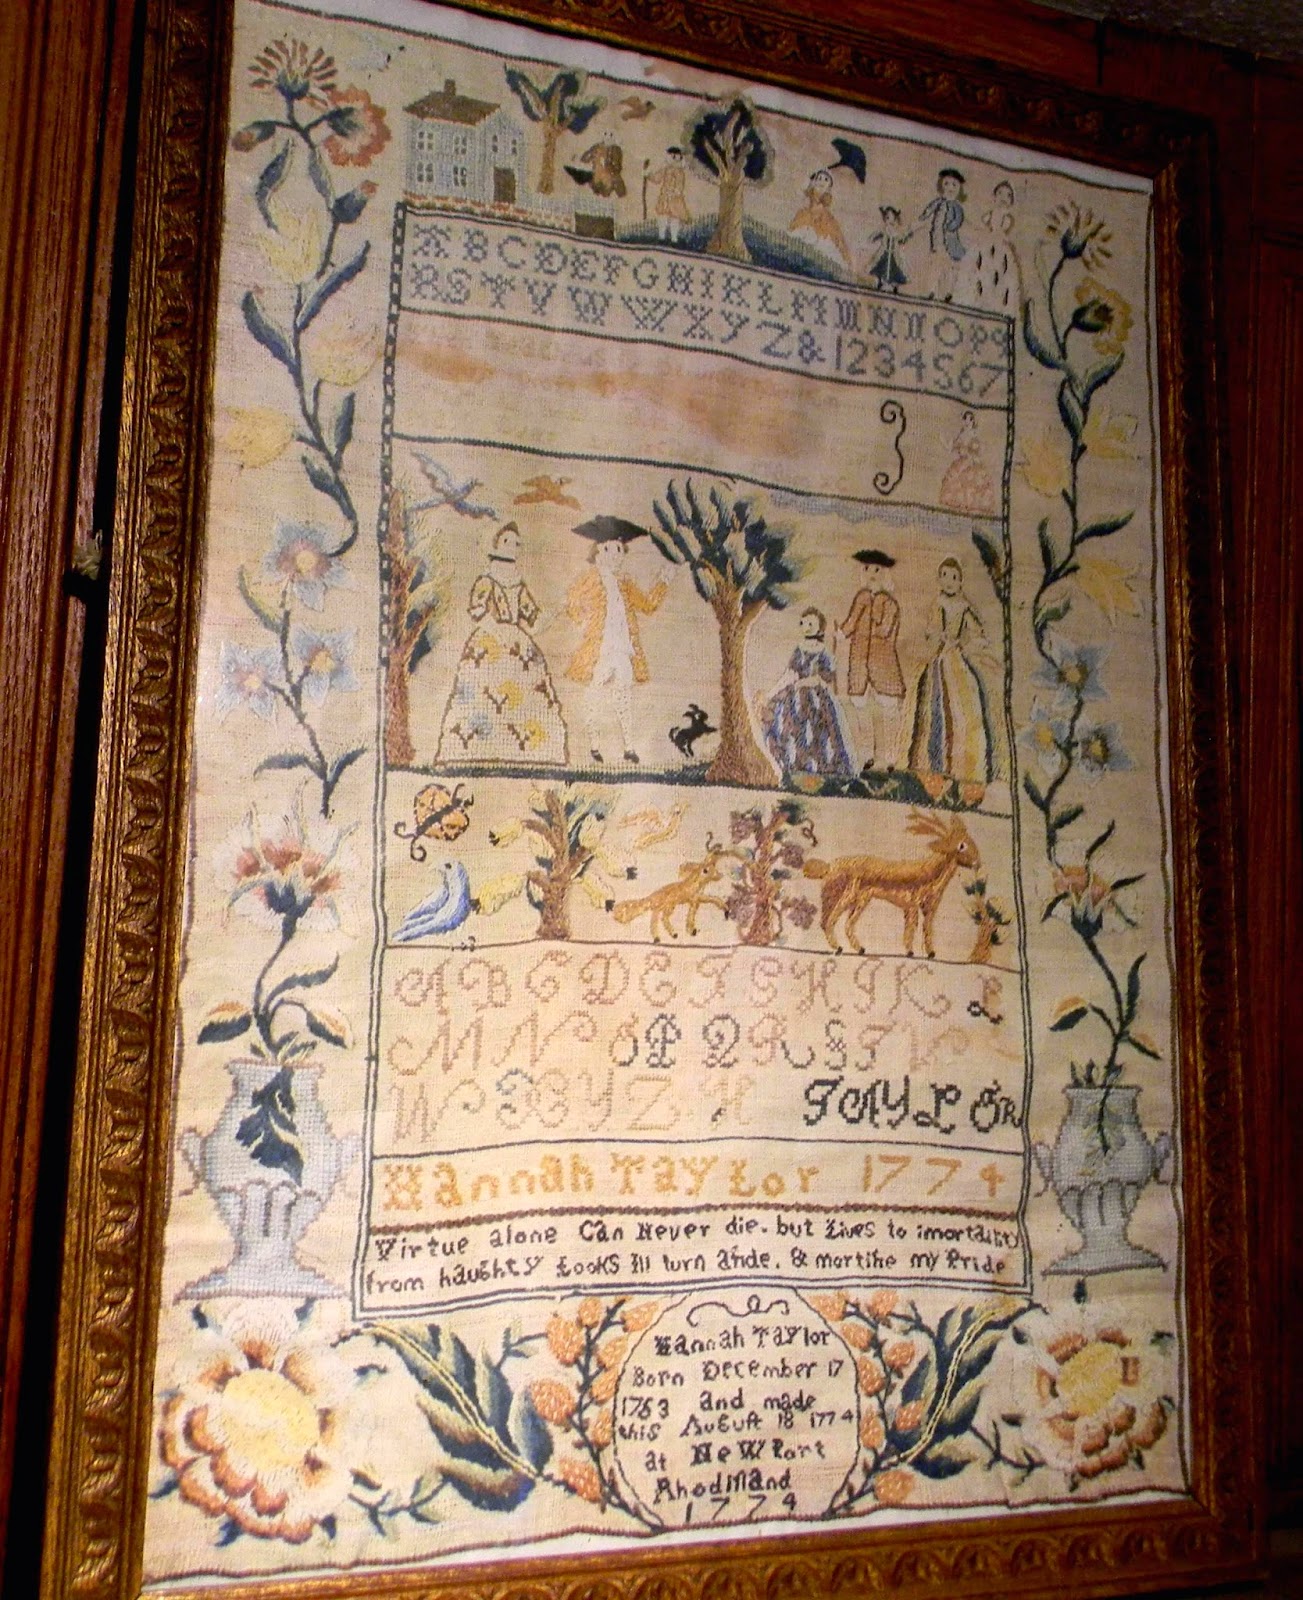 A B C D E F G H I K L M M N N O P Q
R S T V W W X Y Z & 1 2 3 4 5 6 7
A B C D E F G H I K L
M N O P Q R S T V
W X Y Z H TAYLOR
Hannah Taylor 1774
Virtue alone Can Never die. but Lives to imortality
from haughty Looks Ill turn aſide. & mortife my Pride
Hannah Taylor
Born December 17
1763 and made
this Auguſt 18 1774
at NeWPort
RhodIſland
1774